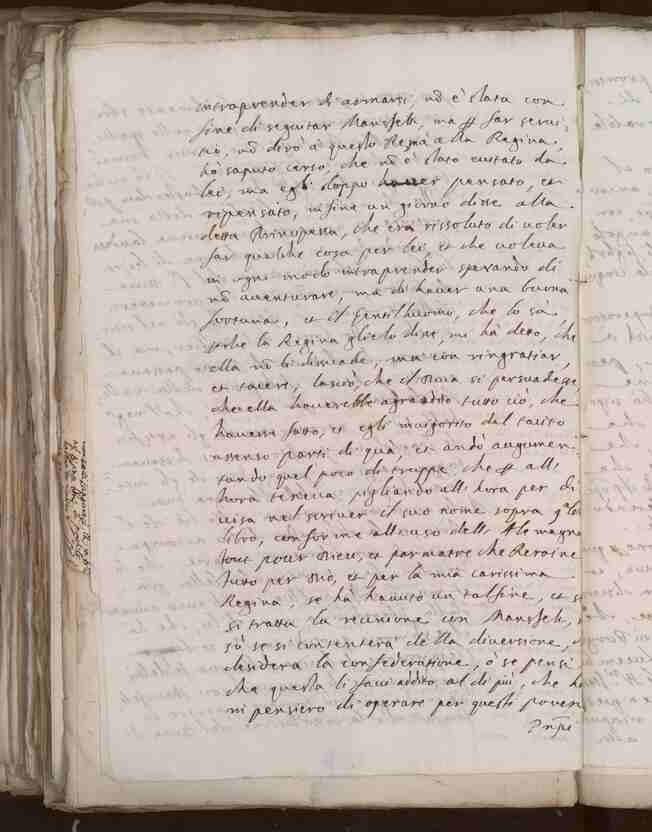 intraprender di armarsi, nō è stata con
fine di seguitar Mansfelt, ma ꝑ far servi-
tio, nō dirò à questo Regnà alla Regina,
hò saputo certo, che nō è stato eccitato da
lei, ma egli doppo haver pensato, et
ripensato, in fine un giorno disse alla
detta Principessa, che era rissoluto di voler
far qualche cosa per lei, et che voleva
in ogni modo intraprender sperando di
nō aventurare, ma di haver una buona
fortuna, et il Gentilhuomo, che lo sà
perche la Regina glielo disse, mi hà detto, che
ella nō li dissuade, ma con ringratiar,
et tacere, lasciò, che il si persuadesse
che ella haverebbe aggradito tutto ciò, che
havesse fatto, et egli invigorito dal tacito
assenso partì di quà, et andò augumen-
tando quel poco di truppe, che ꝑ all'
hora teneva, pigliando all'hora per di-
visa nel scriver il suo nome sopra
libro, conforme all'uso dell' Alemagna
tout pour Dieu, et par ma tre che Reroine
tutto per Dio, et per la mia carissima
Regina, se hà havuto un tal fine, et
si tratta la reunione con Mansfelt,
sò se si contenterà della diversione,
desidera la confederatione, ò se pensi
che questa li facci addito al di più, che
in pensiero di operare per questi poveri
Prn̄pi